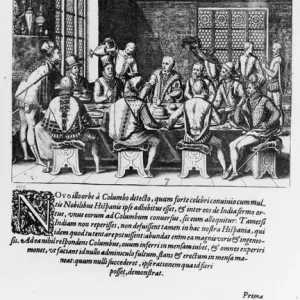 NOvo illo orbe à Columbo detecto, quum forte celebri convivio cum mul-
tis Nobilibus Hispanis ipse adhibitus esset, & inter eos de India sermo or-
tus, unus eorum ad Columbum conversus, sic eum alloquitur: Tametsi
Indiam non reperisses, non defuissent tamen in hac nostra Hispania, qui
idem quod tu potuissent: abundat enim ea magnis viris & ingenio-
sis. Ad ea nihil respondens Columbus, ovum inferri in mensam jubet, & omnes experiri
monet, nullo adminiculo fultum, stans & erectum in mensa ma-
neat: quum nulli succederet, ipse rationem qua id fieri
posset, demonstrat.
Prima